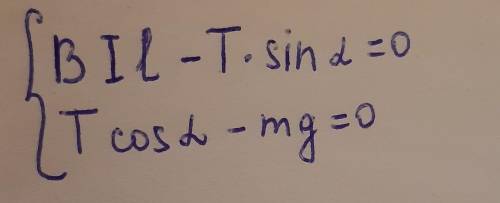 B I l - T · sin α = 0
T cos α - mg = 0